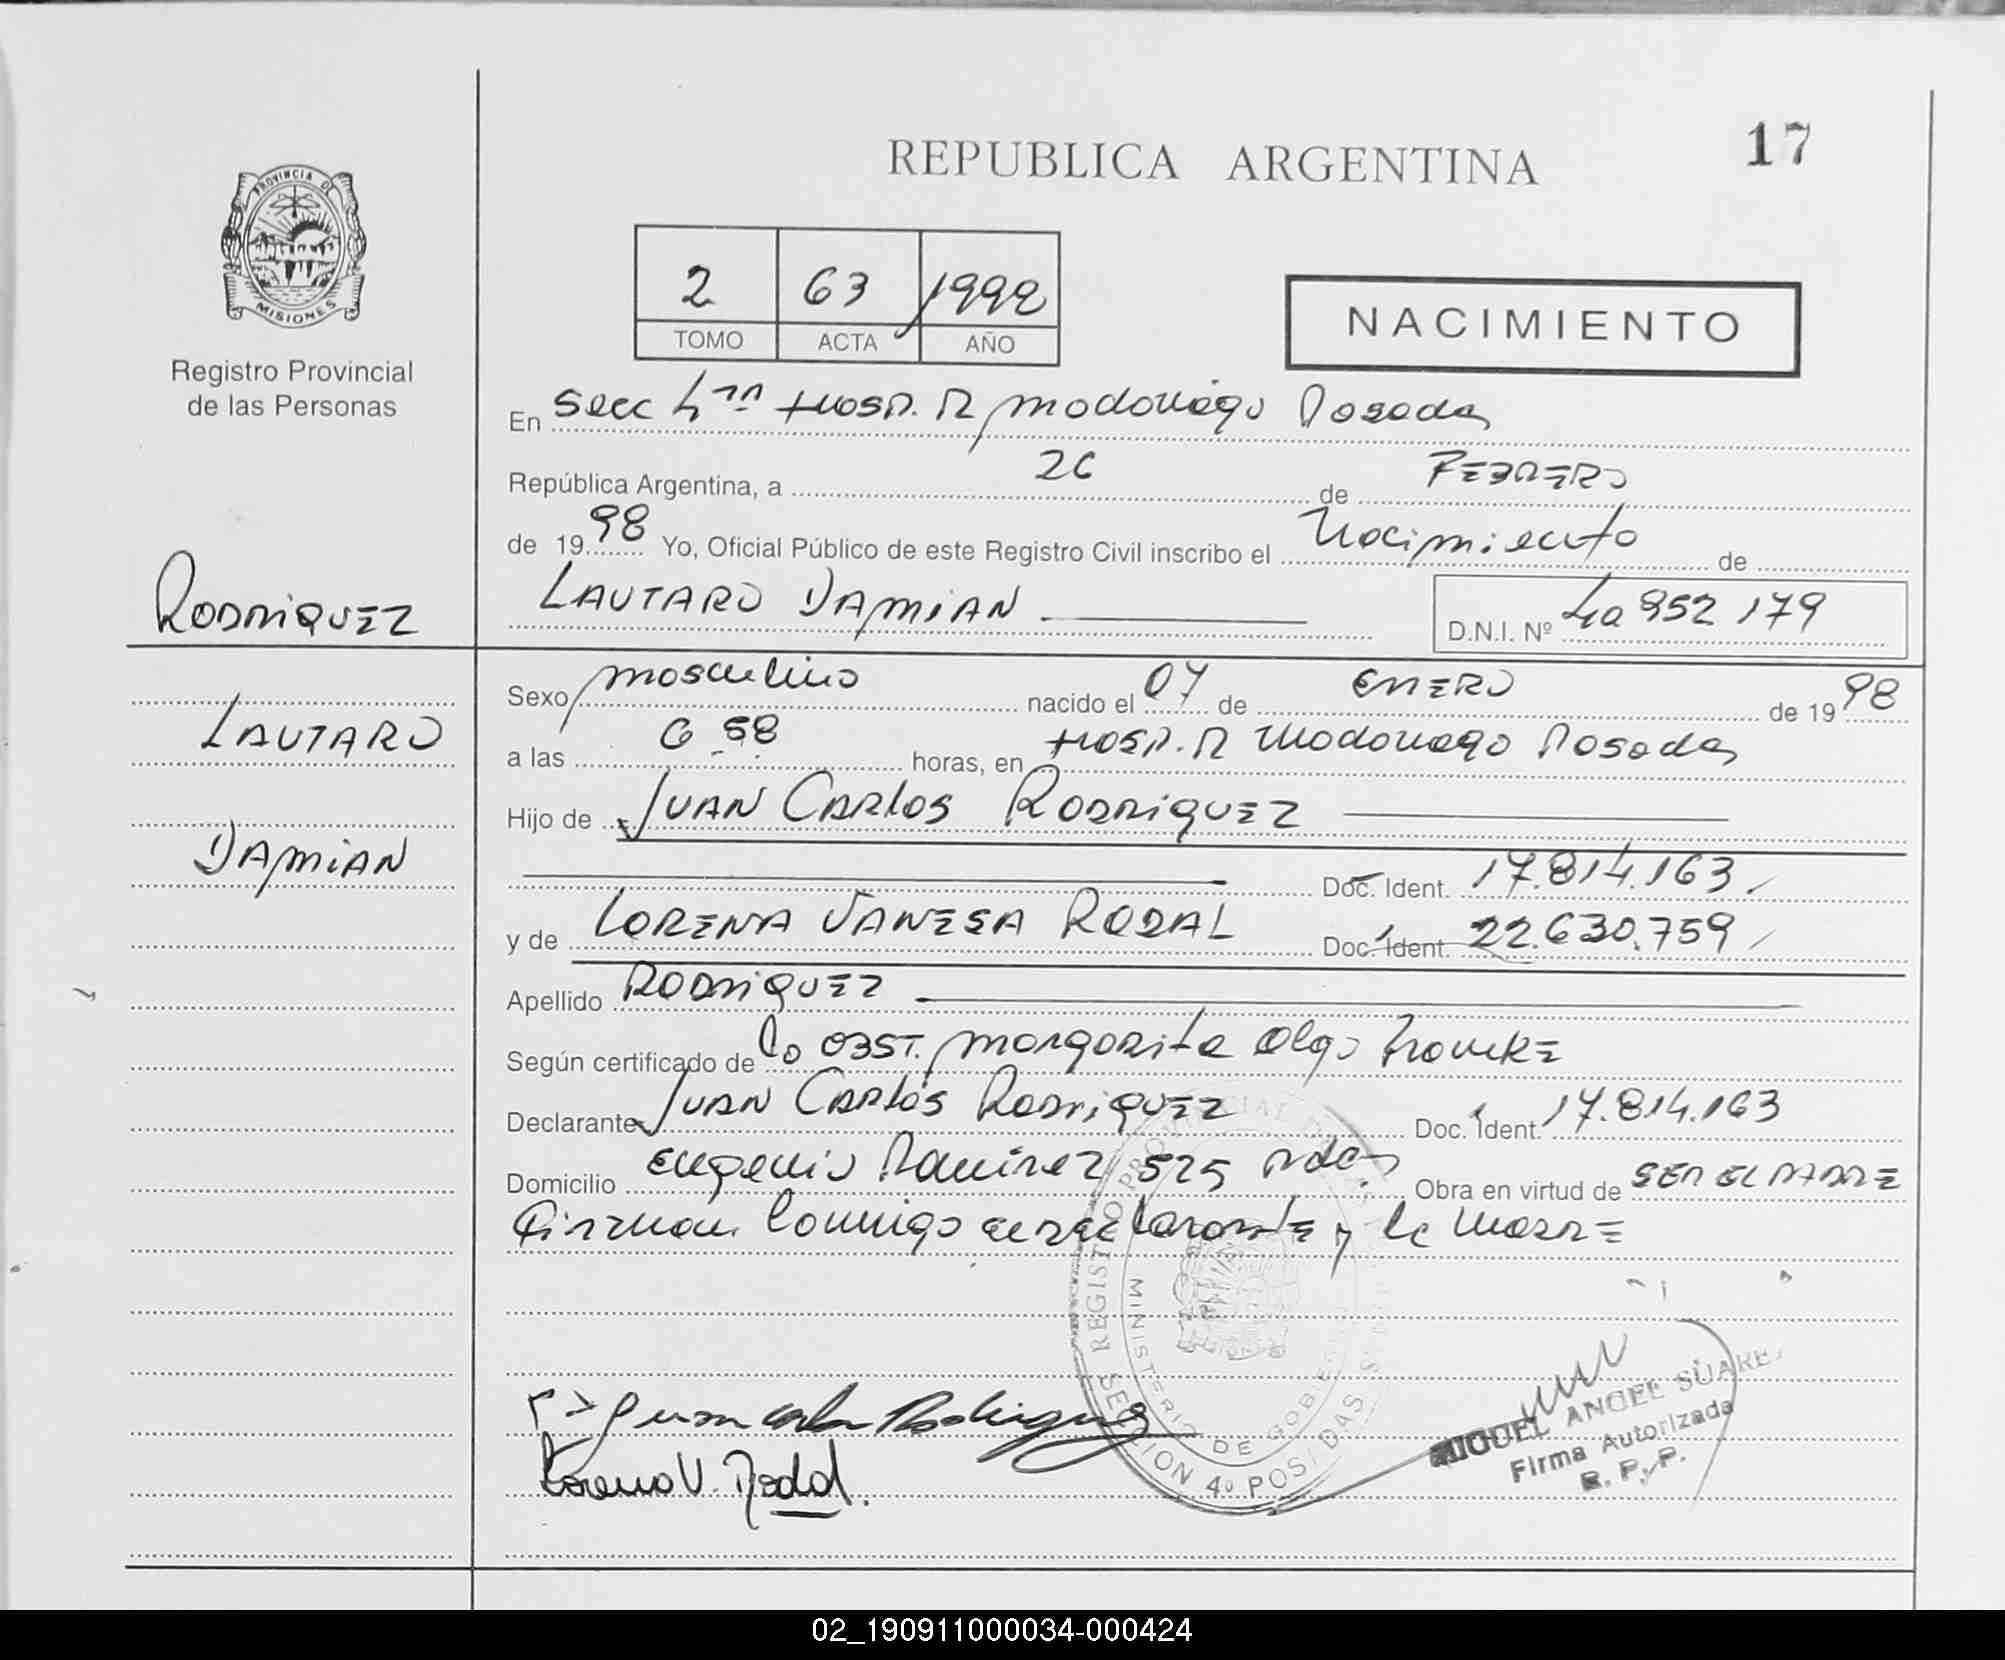 REPUBLICA ARGENTINA
17
PROVINCIA DE
MISIONES
Registro Provincial
de las Personas
2 63 1998
TOMO ACTA AÑO
NACIMIENTO
En Secc 4ta Hosp. R Madariaga Posadas
República Argentina, a 26 de FEBRERO
de 1998 Yo, Oficial Público de este Registro Civil inscribo el Nacimiento de
LAUTARO DAMIAN
D.N.I. Nº 40 952 179
RODRIGUEZ
LAUTARO
DAMIAN
Sexo masculino nacido el 07 de ENERO de 1998
a las 6 58 horas, en Hosp. R Madariaga Posadas
Hijo de JUAN CARLOS RODRIGUEZ
Doc. Ident. 17.814.163
y de LORENA VANESA RODAL Doc. Ident. 22.630.759
Apellido RODRIGUEZ
Según certificado de la OBST. Margarita Olga
Declarante JUAN CARLOS RODRIGUEZ Doc. Ident. 17.814.163
Domicilio Eugenio Ramirez 525 Pdas Obra en virtud de SER EL PADRE
Firman Conmigo el declarante y la madre
Juan Carlos Rodriguez
Lorena V. Rodal.
REGISTRO PROVINCIAL DE LAS
MINISTERIO DE GOBIE
SECCION 4º POSADAS
MIGUEL ANGEL SUAREZ
Firma Autorizada
R. P. P.
02_190911000034-000424